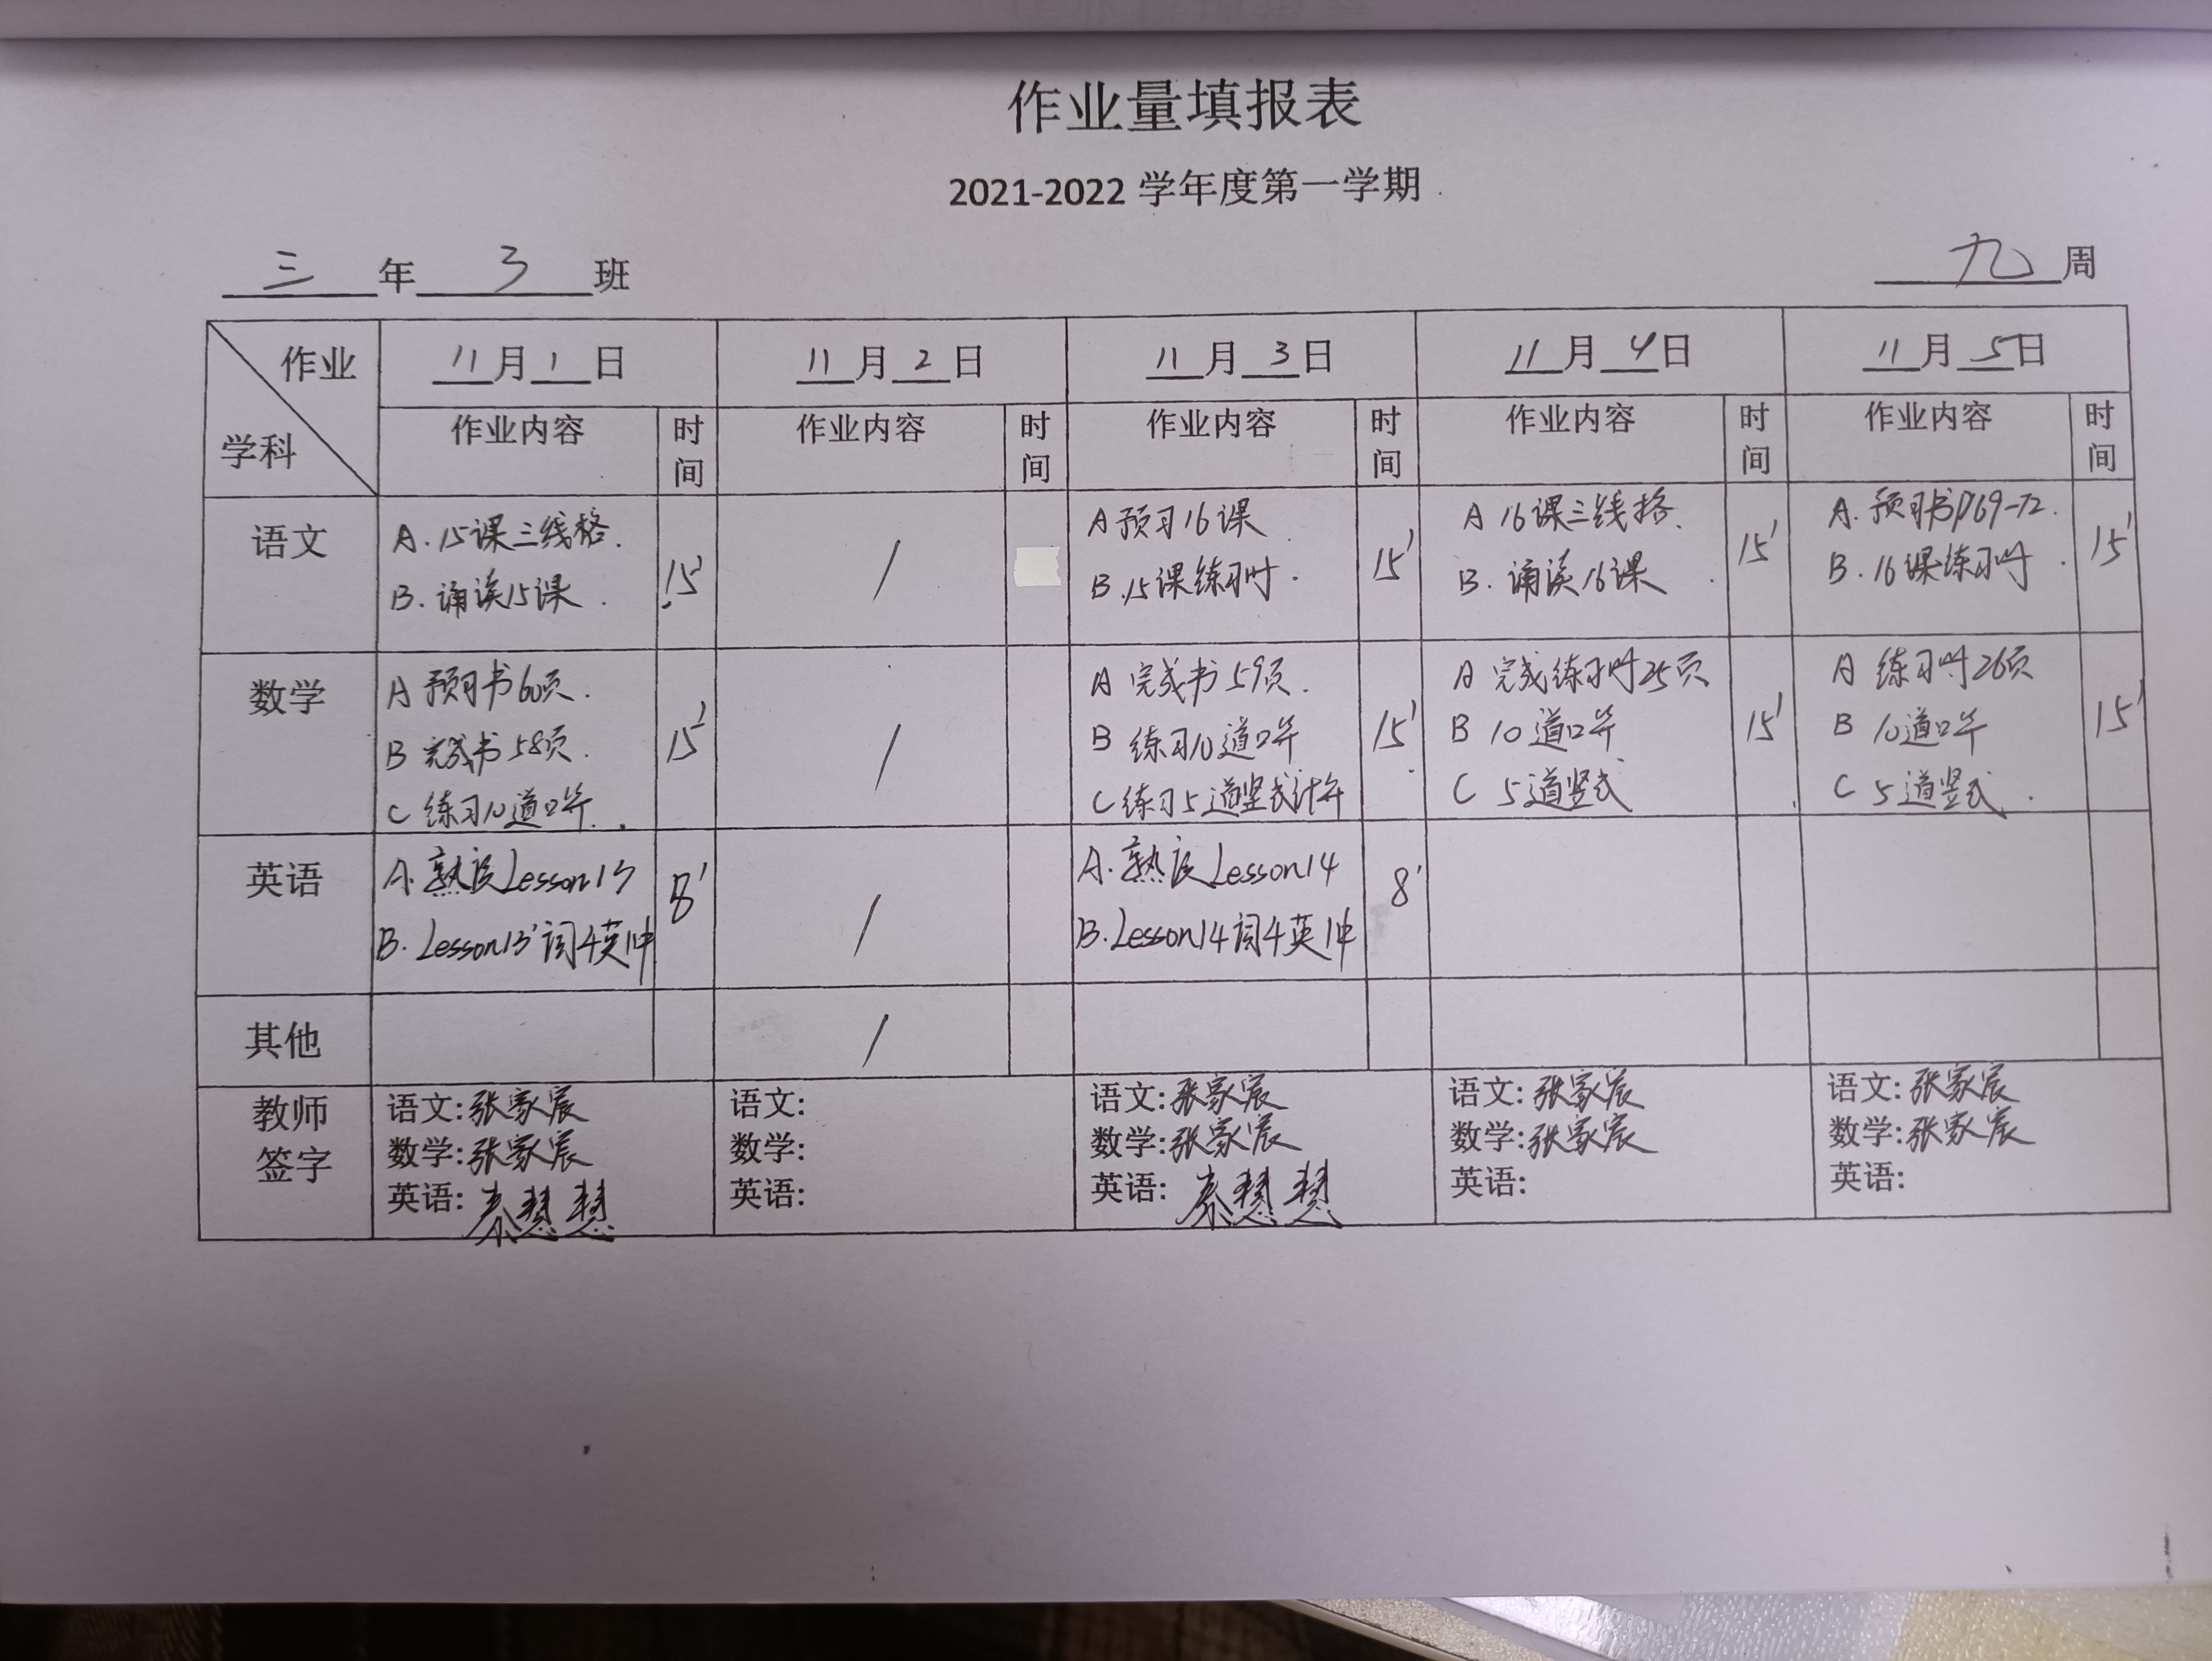 作业量填报表
2021-2022 学年度第一学期
三 年 3 班 九 周
作业 学科 11月1日 11月2日 11月3日 11月4日 11月5日
作业内容 时间 作业内容 时间 作业内容 时间 作业内容 时间 作业内容 时间
语文
A. 15课三线格.
B. 诵读15课.
15'
/
A 预习16课
B. 15课练习册.
15'
A 16课三线格.
B. 诵读16课.
15'
A. 预习书P69-72.
B. 16课练习册.
15'
数学
A 预习书60页.
B 完成书58页.
C 练习10道口算.
15'
/
A 完成书59页.
B 练习10道口算
C 练习5道竖式计算
15'
A 完成练习册25页
B 10道口算
C 5道竖式
15'
A 练习册26页
B 10道口算
C 5道竖式.
15'
英语
A. 熟读Lesson13
B. Lesson13词4英1中
8'
/
A. 熟读Lesson14
B. Lesson14词4英1中
8'
其他
/
教师
签字
语文: 张家宸
数学: 张家宸
英语: 秦慧慧
语文:
数学:
英语:
语文: 张家宸
数学: 张家宸
英语: 秦慧慧
语文: 张家宸
数学: 张家宸
英语:
语文: 张家宸
数学: 张家宸
英语: